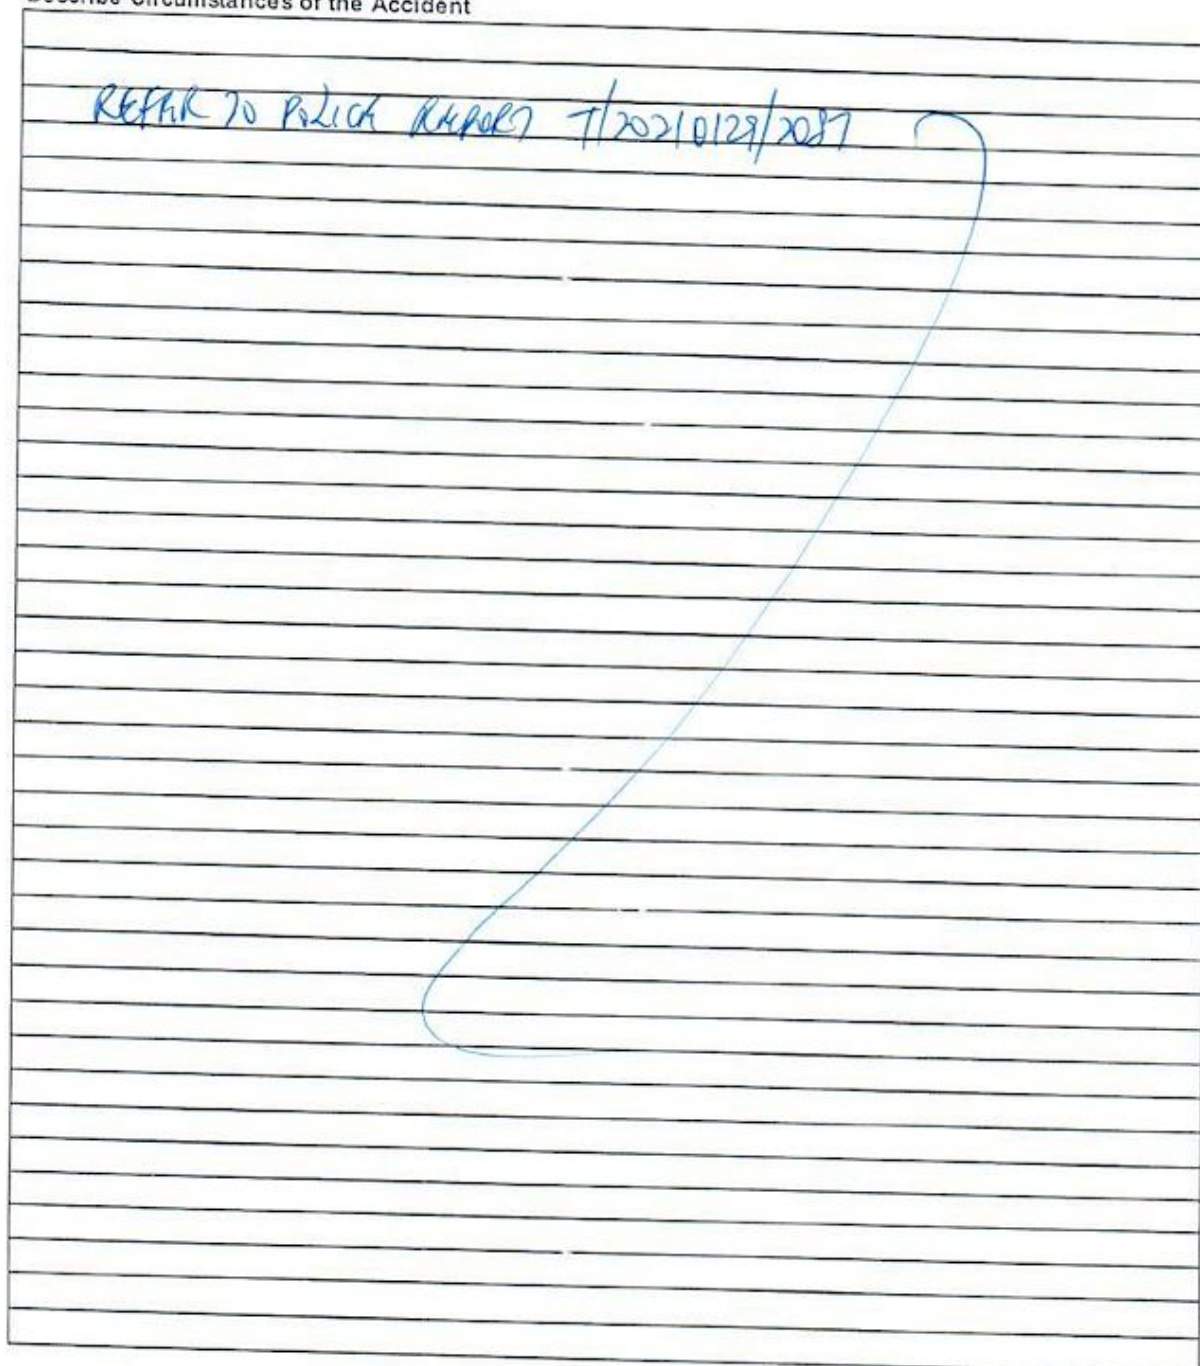 Describe Circumstances of the Accident
REFER TO POLICE REPORT T/20210129/2087